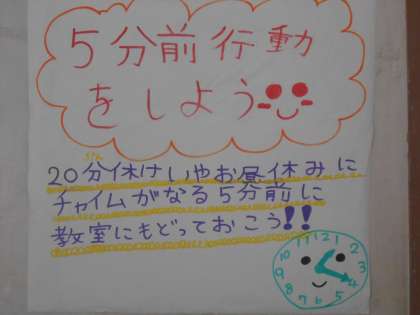 5分前行動
をしよう
20分休けいやお昼休みに
チャイムがなる5分前に
教室にもどっておこう!!
12 1 2 3 4 5 6 7 8 9 10 11